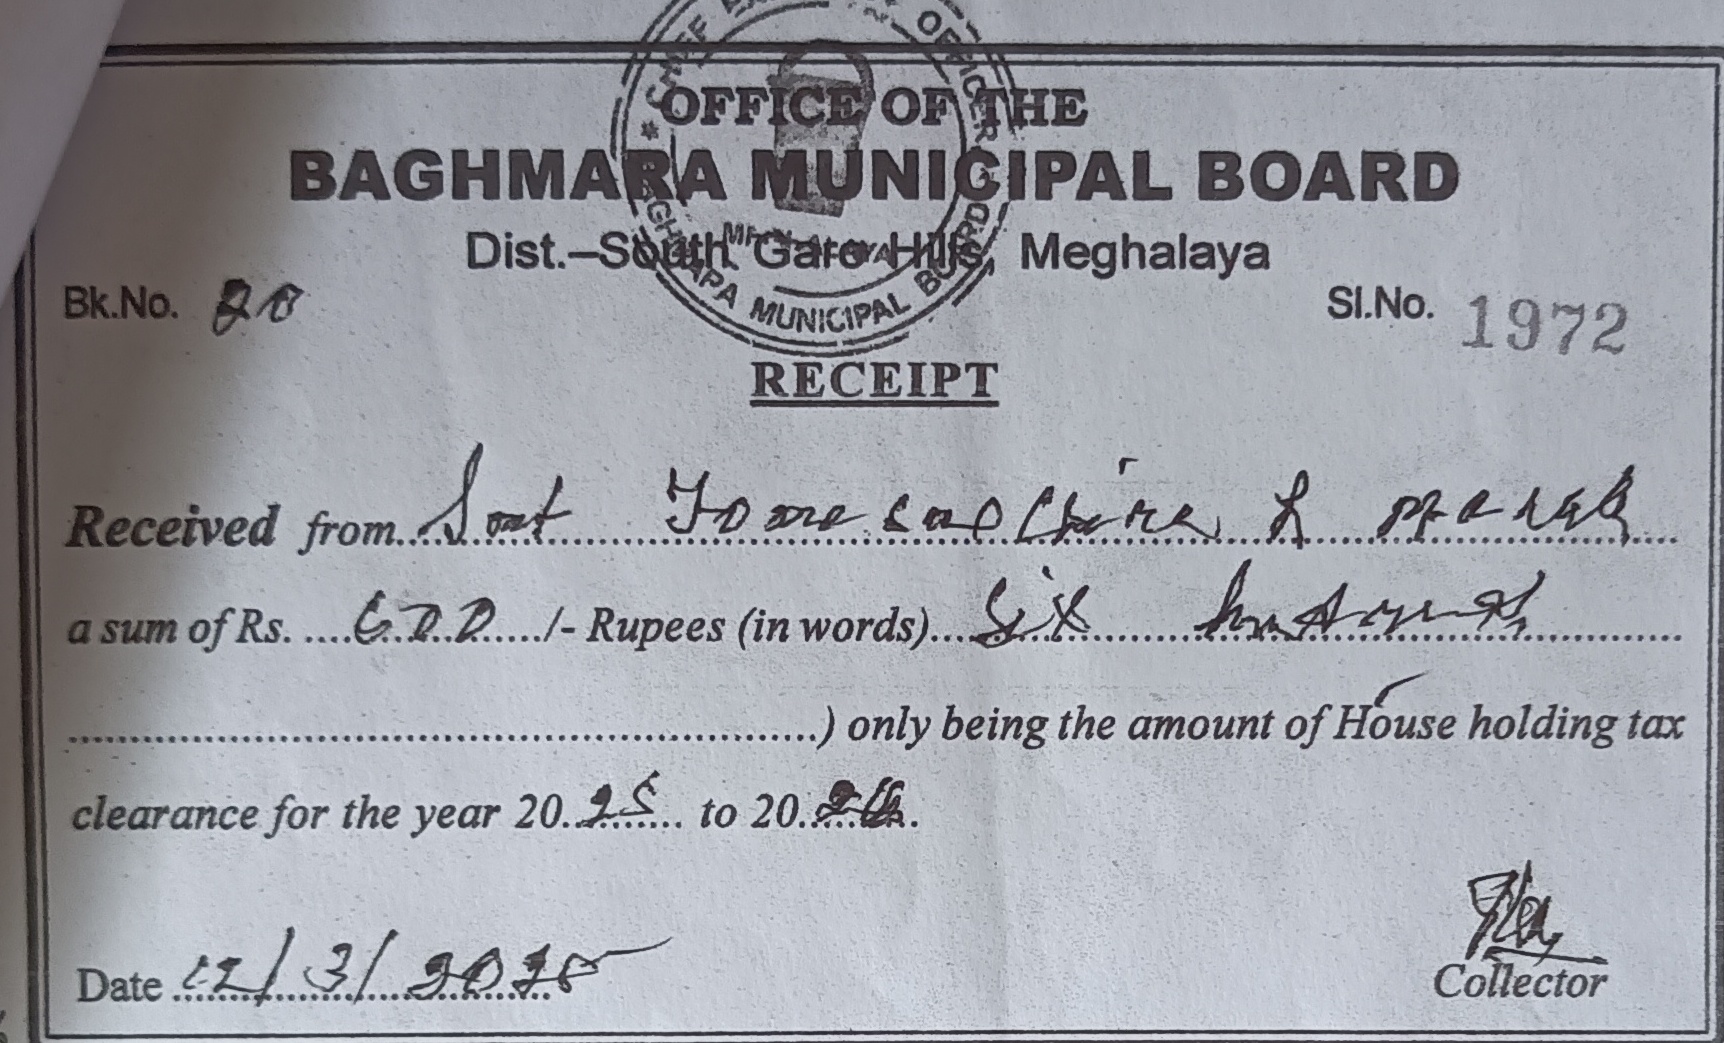 CHIEF EXECUTIVE OFFICER
BAGHMARA MUNICIPAL BOARD
MEGHALAYA
OFFICE OF THE
BAGHMARA MUNICIPAL BOARD
Dist.–South Garo Hills, Meghalaya
Bk.No. 20 Sl.No. 1972
RECEIPT
Received from Smt
a sum of Rs. 600 /- Rupees (in words) Six hundred
) only being the amount of House holding tax
clearance for the year 2025 to 2026.
Date 12/3/2025
Collector